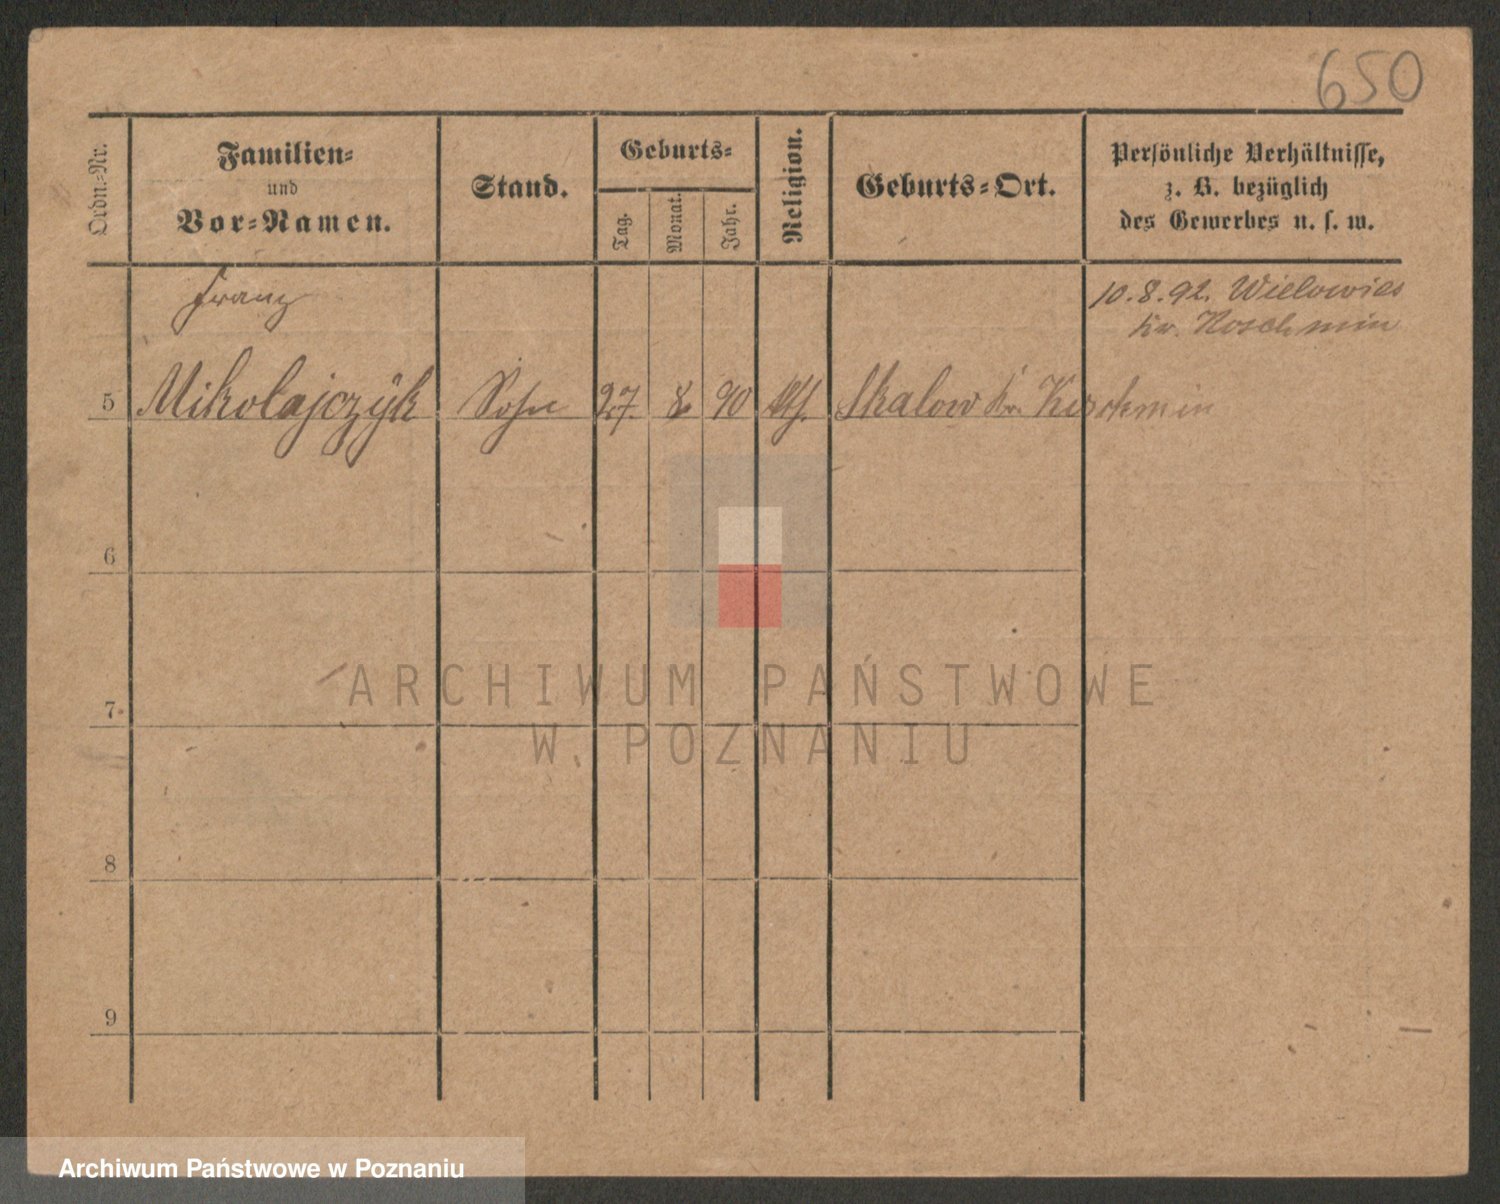 650
Ordn.-Nr.
Familien-
und
Vor-Namen.
Stand.
Geburts-
Tag.
Monat.
Jahr.
Religion.
Geburts-Ort.
Persönliche Verhältnisse,
z. B. bezüglich
des Gewerbes u. s. w.
Franz
10.8.92. Wielowies
Kr. Koschmin
5 Mikolajczÿk Sohn 27. 8 90 kth. Skalow Kr. Koschmin
6
ARCHIWUM PAŃSTWOWE
7
W POZNANIU
8
9
Archiwum Państwowe w Poznaniu